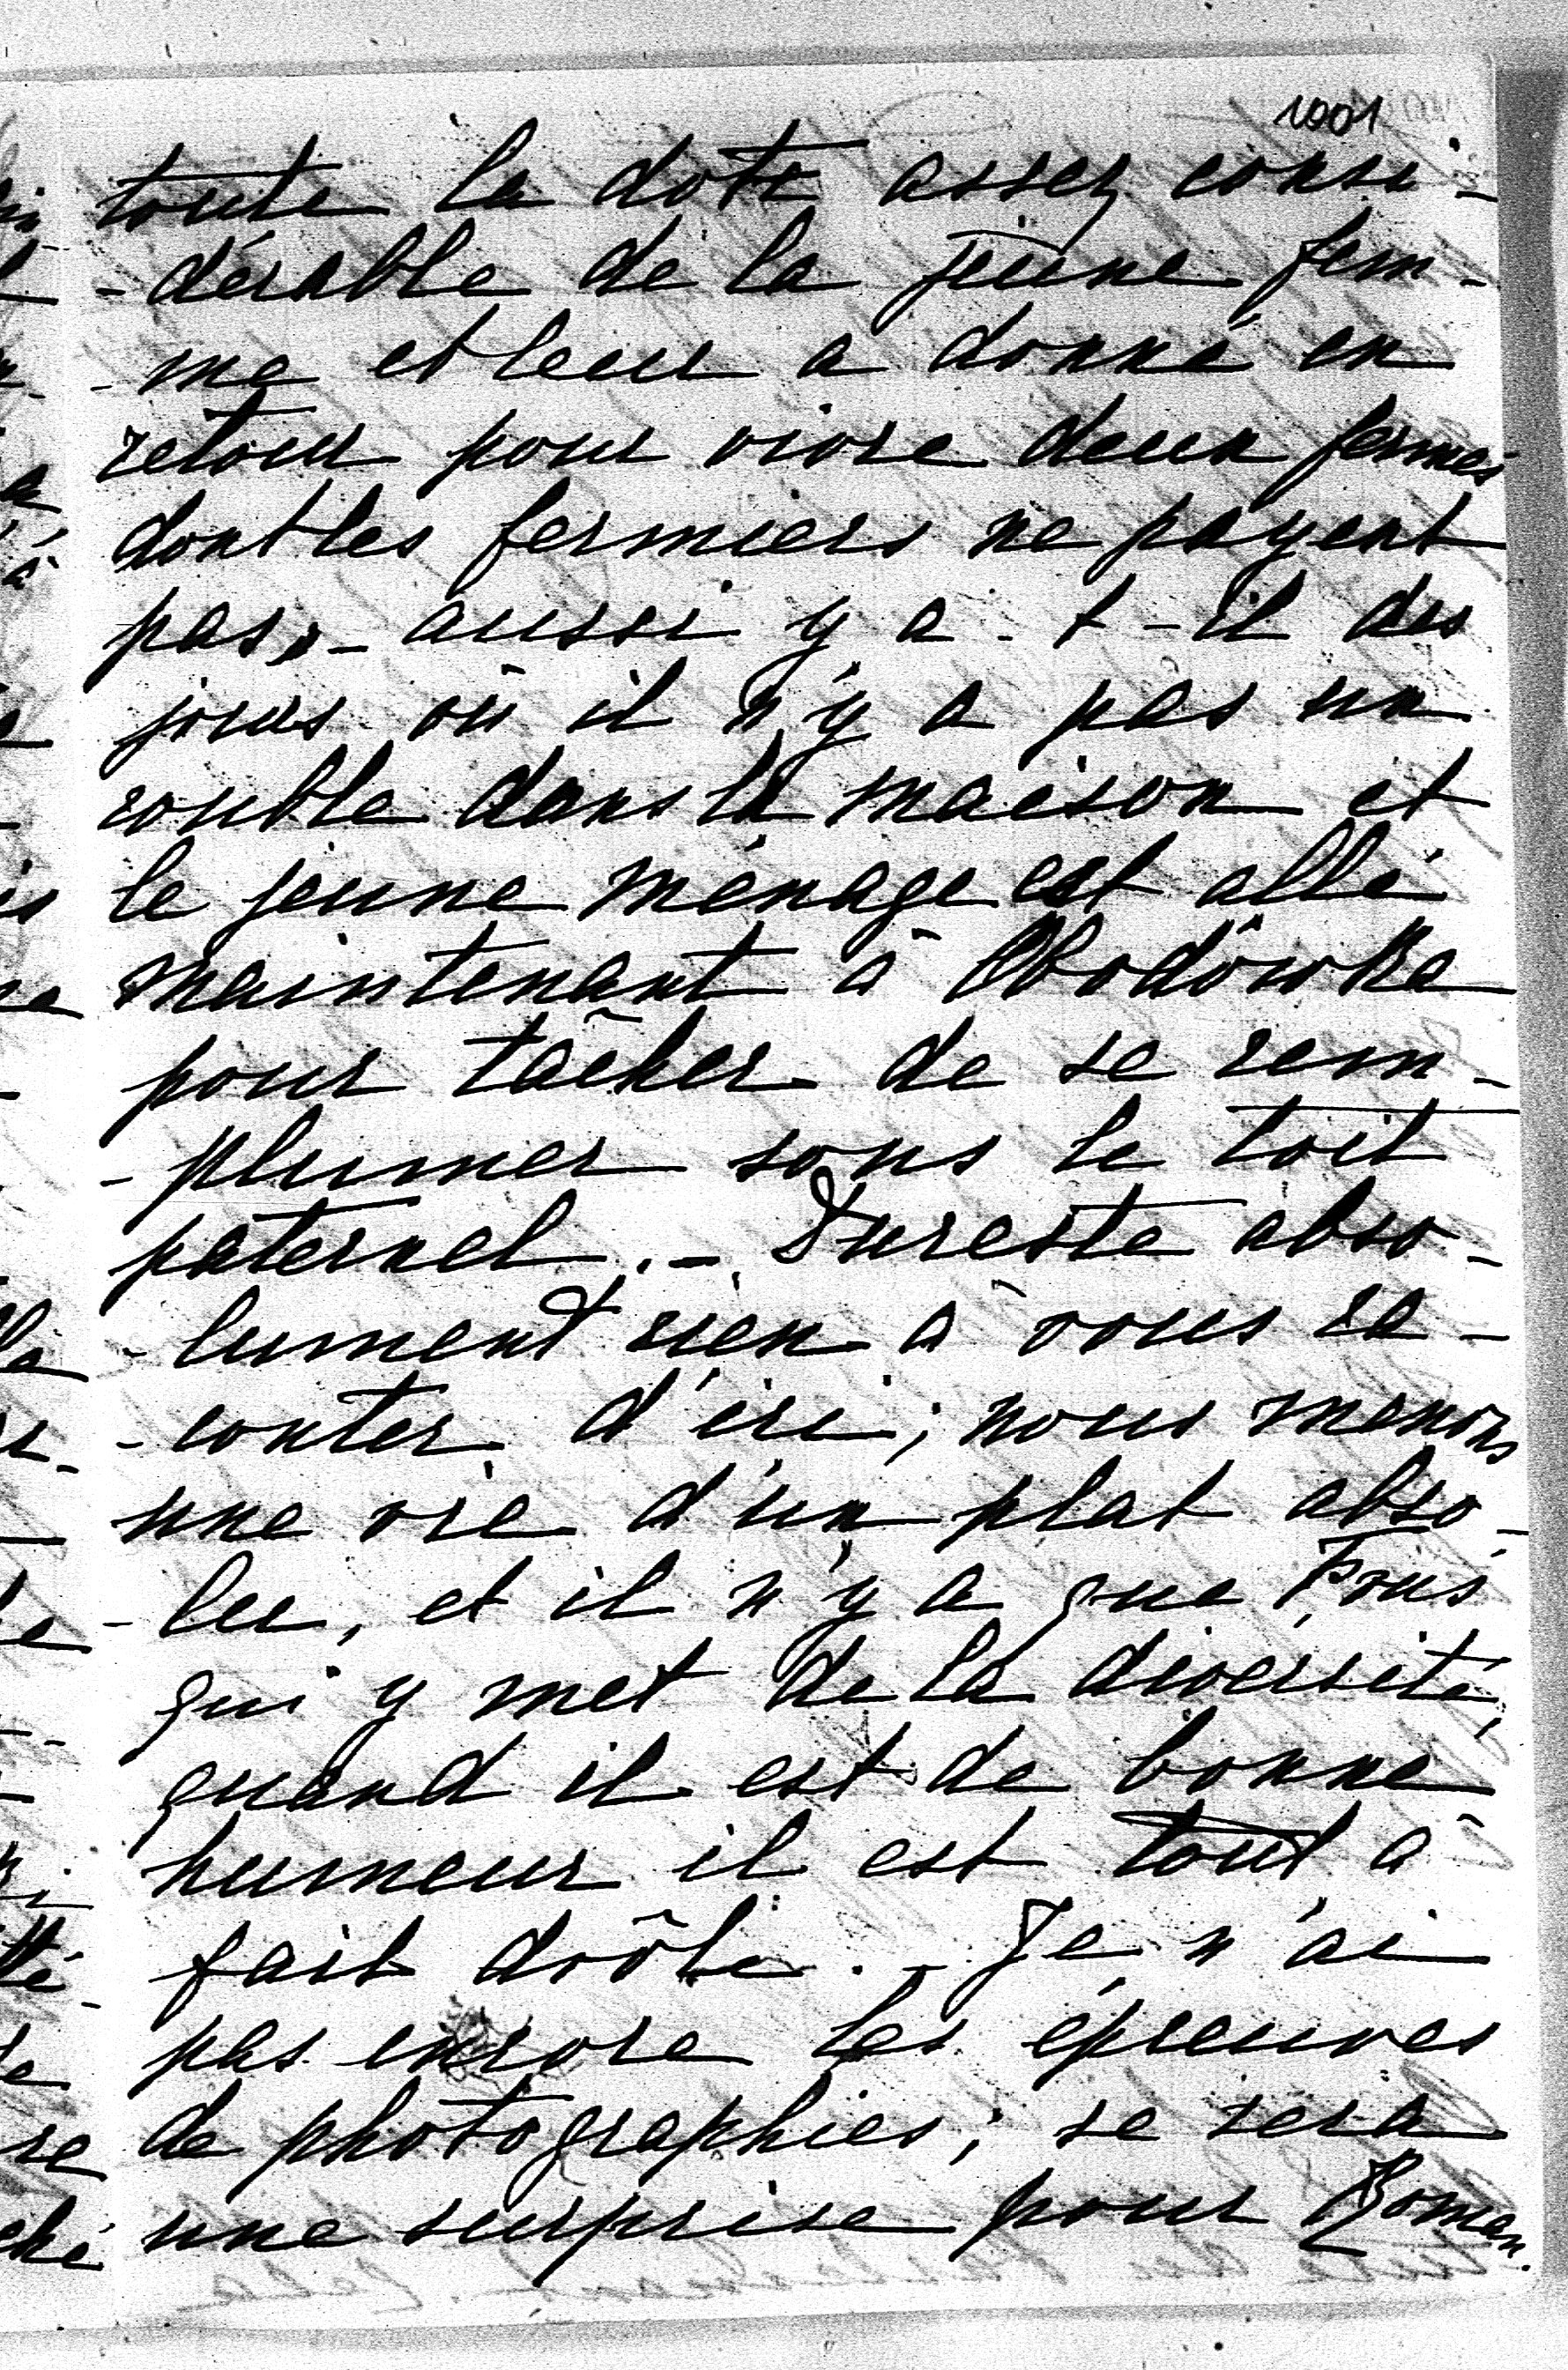 1001
toute la dote assez consi-
-dérable de la jeune fem-
-me et leur a donné en
retour pour vivre deux fermes
dont les fermiers ne payent
pas, - aussi y a-t-il des
jours où il n'y a pas un
rouble dans la maison et
le jeune ménage est allé
maintenant à Obodówka
pour tâcher de se rem-
-plumer sous le toit
paternel. - Dureste abso-
-lument rien à vous ra-
-conter d'ici; nous menons
une vie d'un plat abso-
-lu, et il n'y a que
qui y met de la diversité,
quand il est de bonne
humeur il est tout à
fait drôle. - Je n'ai
pas encore les épreuves
de photographies; se sera
une surprise pour Roman.